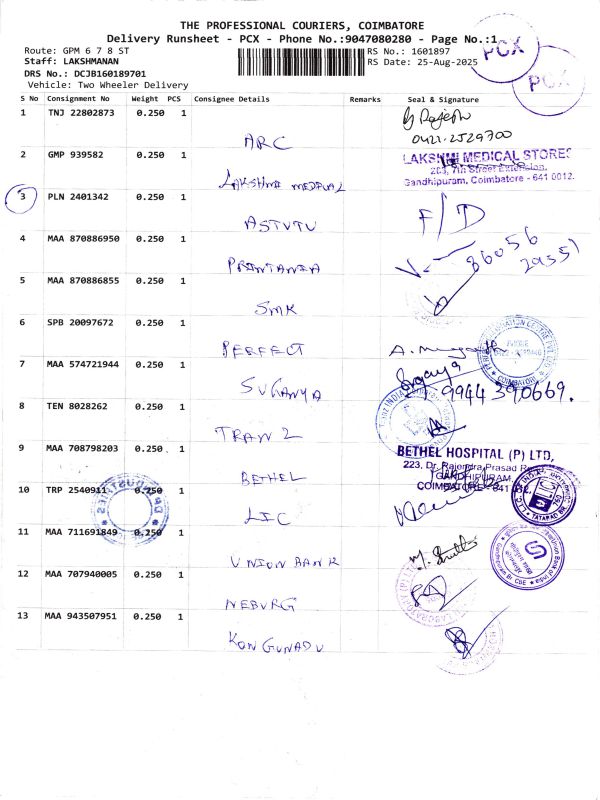 THE PROFESSIONAL COURIERS, COIMBATORE
Delivery Runsheet - PCX - Phone No.:9047080280 - Page No.:1
Route: GPM 6 7 8 ST
RS No.: 1601897
Staff: LAKSHMANAN
RS Date: 25-Aug-2025
DRS No.: DCJB160189701
Vehicle: Two Wheeler Delivery
PCX
PCX
S No Consignment No Weight PCS Consignee Details Remarks Seal & Signature
1 TNJ 22802873 0.250 1
ARC
B Rajesh
0421-2529700
2 GMP 939582 0.250 1
LAKSHMI MEDICAL
LAKSHMI MEDICAL STORES
203, 7th Street Extension,
Gandhipuram, Coimbatore - 641 0012.
3 PLN 2401342 0.250 1
ASTUTU
F/D
4 MAA 870886950 0.250 1
PRINTANIA
86056
29551
5 MAA 870886855 0.250 1
SMK
6 SPB 20097672 0.250 1
PERFECT
7 MAA 574721944 0.250 1
SUGANYA
9944390669.
8 TEN 8028262 0.250 1
TRANZ
9 MAA 708798203 0.250 1
BETHEL
BETHEL HOSPITAL (P) LTD,
223, Dr. Rajendra Prasad
GANDHIPURAM,
COIMBATORE - 641 012.
10 TRP 2540911 0.250 1
LIC
11 MAA 711691849 0.250 1
UNION BANK
12 MAA 707940005 0.250 1
NEBURG
13 MAA 943507951 0.250 1
KONGUNADU